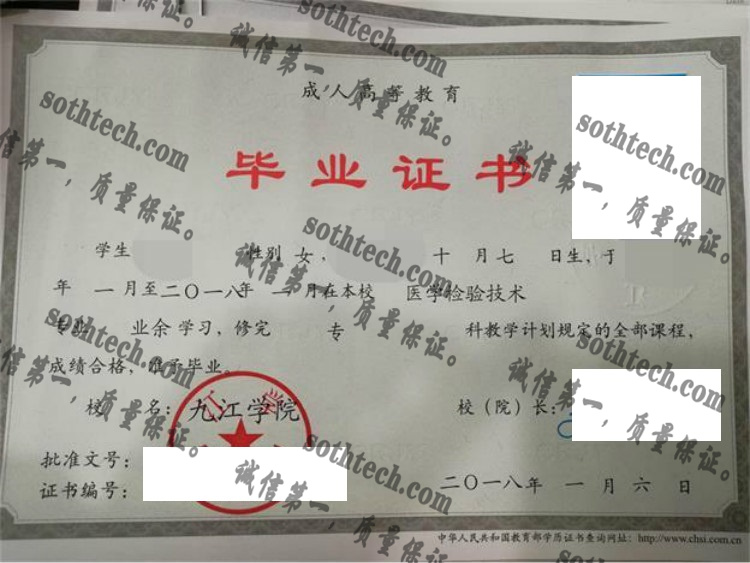 成人高等教育
毕业证书
学生 性别 女， 十 月 七 日生，于
年 一 月至二〇一八年 一 月在本校 医学检验技术
专业 业余 学习，修完 专 科教学计划规定的全部课程，
成绩合格，准予毕业。
校 名：九江学院 校（院）长：
批准文号：
证书编号： 二〇一八年 一 月 六 日
中华人民共和国教育部学历证书查询网址：http://www.chsi.com.cn
sothtech.com
诚信第一，质量保证。
sothtech.com
诚信第一，质量保证。
sothtech.com
诚信第一，质量保证。
sothtech.com
诚信第一，质量保证。
sothtech.com
诚信第一，质量保证。
sothtech.com
诚信第一，质量保证。
sothtech.com
诚信第一，质量保证。
sothtech.com